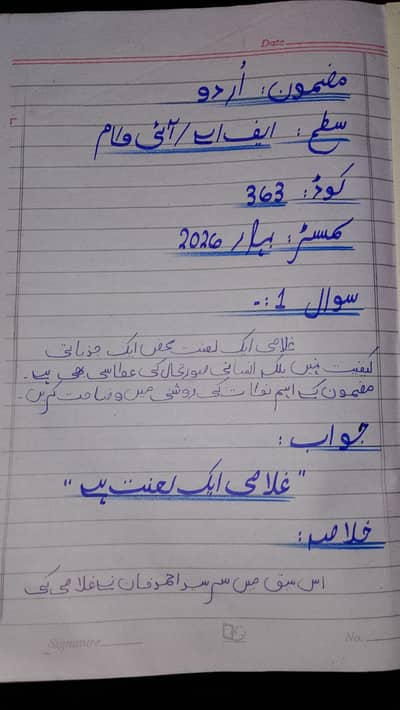 Date
مضمون: اُردو
سطح: ایف اے/آئی کام
کوڈ: 363
سمسٹر: بہار 2026
سوال 1:-
غلامی ایک لعنت محض ایک جذباتی
کیفیت نہیں بلکہ انسانی صورتحال کی عکاسی بھی ہے۔
مضمون کے اہم نکات کی روشنی میں وضاحت کریں۔
جواب:
"غلامی ایک لعنت ہے"
خلاصہ:
اس سبق میں سر سید احمد خان نے غلامی کی
Signature No.